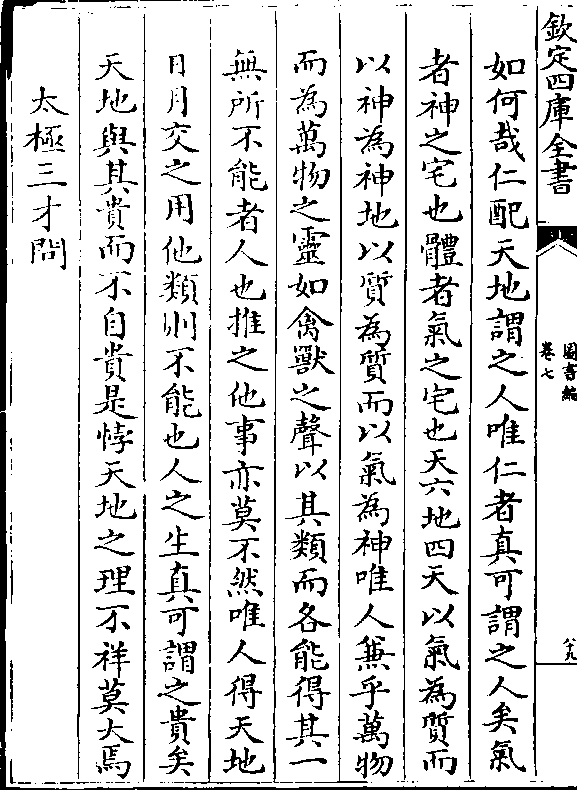 欽定四庫全書
圖書編
卷七
八十九
如何哉仁配天地謂之人唯仁者真可謂之人矣氣
者神之宅也體者氣之宅也天六地四天以氣為質而
以神為神地以質為質而以氣為神唯人兼乎萬物
而為萬物之靈如禽獸之聲以其類而各能得其一
無所不能者人也推之他事亦莫不然唯人得天地
日月交之用他類則不能也人之生真可謂之貴矣
天地與其貴而不自貴是悖天地之理不祥莫大焉
太極三才問